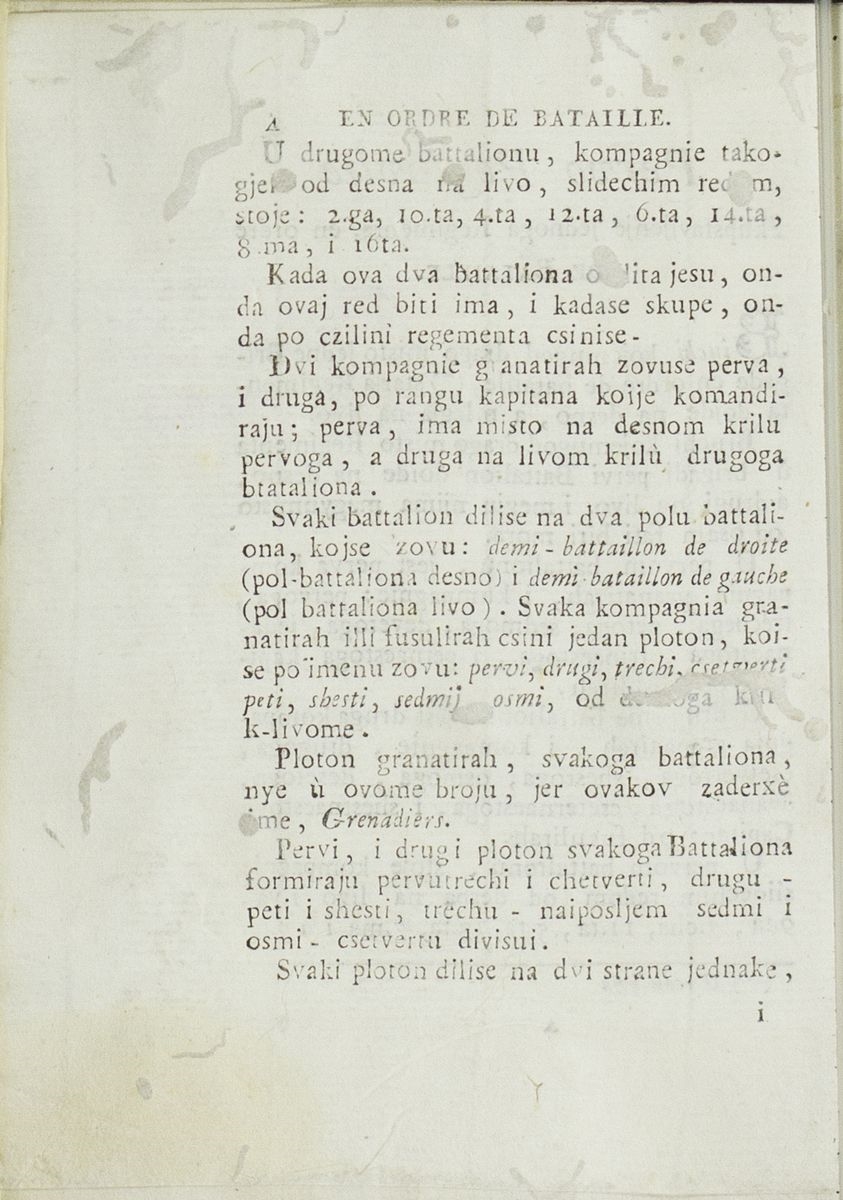 4 EN ORDRE DE BATAILLE.
U drugome battalionu, kompagnie tako-
od desna na livo, slidechim
stoje: 2.ga, 10.ta, 4.ta, 12.ta, 6.ta, 14.ta,
8.ma, i 16ta.
Kada ova dva battaliona jesu, on-
da ovaj red biti ima, i kadase skupe, on-
da po czilini regementa csinise-
Dvi kompagnie granatirah zovuse perva,
i druga, po rangu kapitana koije komandi-
raju; perva, ima misto na desnom krilu
pervoga, a druga na livom krilù drugoga
btataliona.
Svaki battalion dilise na dva polu battali-
ona, kojse zovu: demi-battaillon de droite
(pol-battaliona desno) i demi-bataillon de gauche
(pol battaliona livo). Svaka kompagnia gra-
natirah illi fusulirah csini jedan ploton, koi-
se po imenu zovu: pervi, drugi, trechi, csetverti
peti, shesti, sedmij osmi, od
k-livome.
Ploton granatirah, svakoga battaliona,
nye ù ovome broju, jer ovakov zaderxè
ime, Grenadièrs.
Pervi, i drugi ploton svakoga Battaliona
formiraju pervu trechi i chetverti, drugu -
peti i shesti, trechu - naiposljem sedmi i
osmi - csetvertu divisui.
Svaki ploton dilise na dvi strane jednake,
i